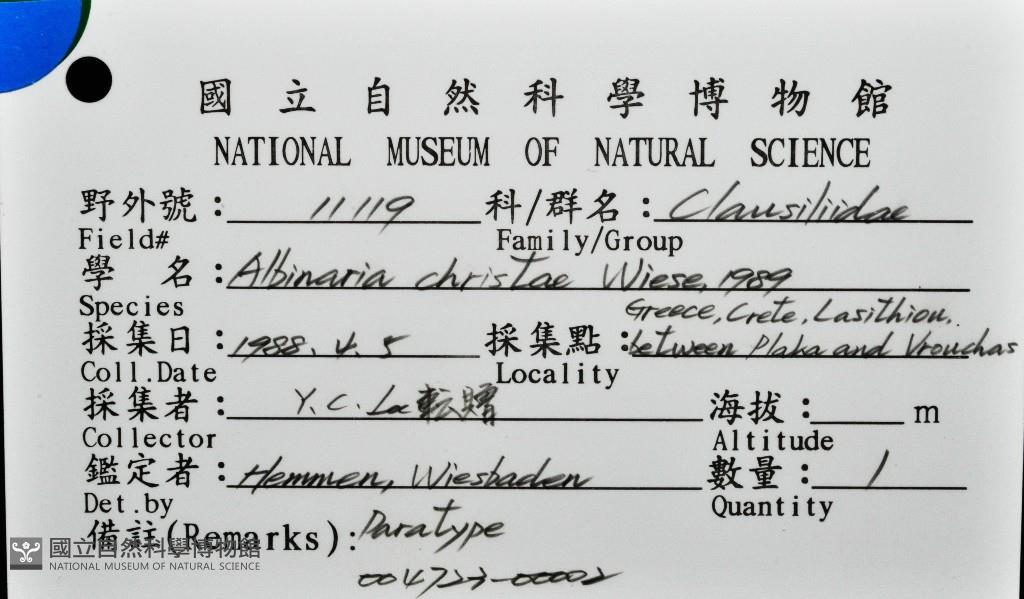 國立自然科學博物館
NATIONAL MUSEUM OF NATURAL SCIENCE
野外號：11119 科/群名：Clausiliidae
Field# Family/Group
學名：Albinaria christae Wiese, 1989
Species
Greece, Crete, Lasithiou,
採集日：1988. 4. 5 採集點：between Plaka and Vrouchas
Coll.Date Locality
採集者：Y. C. 轉贈 海拔：m
Collector Altitude
鑑定者：Hemmen, Wiesbaden 數量：1
Det.by Quantity
備註(Remarks)：Paratype
004723-00002
國立自然科學博物館
NATIONAL MUSEUM OF NATURAL SCIENCE